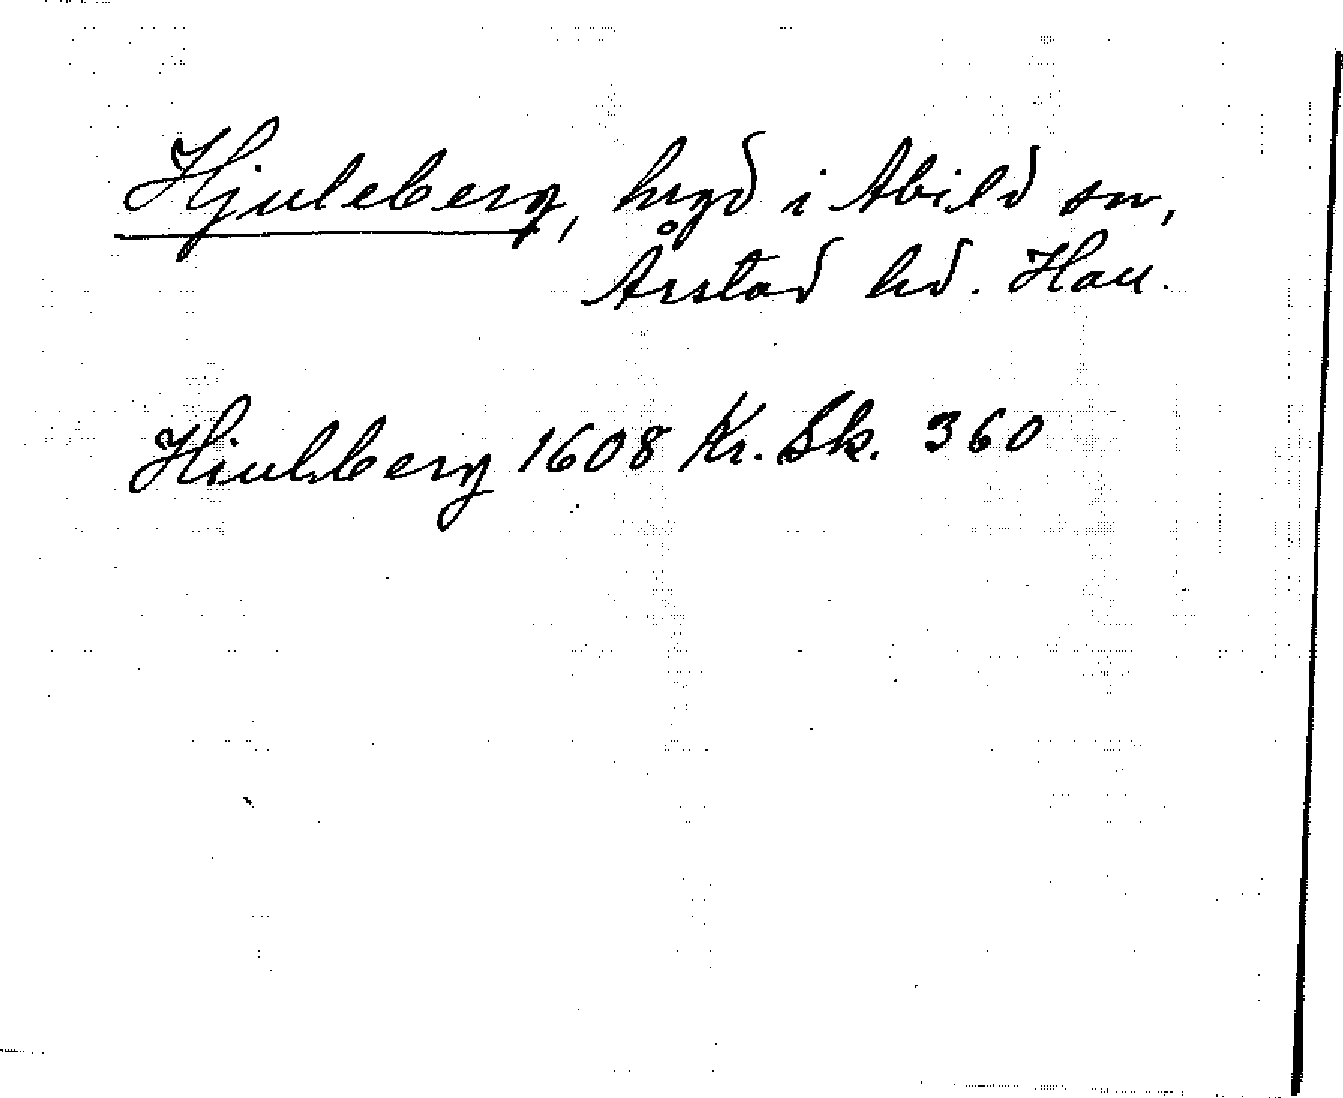 Hjuleberg, hrgd i Abild sn,
Årstad hd. Hall.
Hiulberg 1608 Kr. Sk. 360